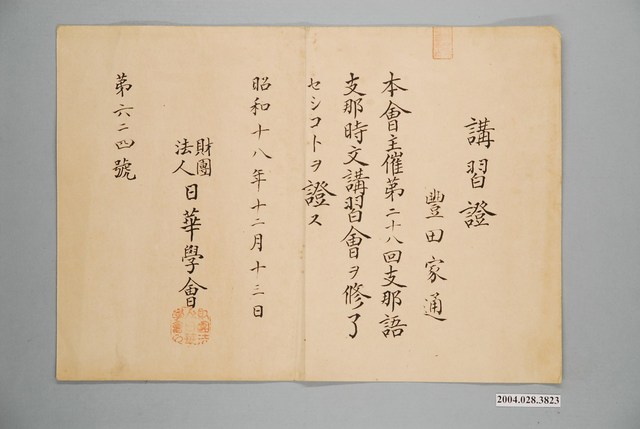 講習證
豐田家通
本會主催第二十八回支那語
支那時文講習會ヲ修了
セシコトヲ證ス
昭和十八年十二月十三日
財團法人日華學會
第六二四號
2004.028.3823